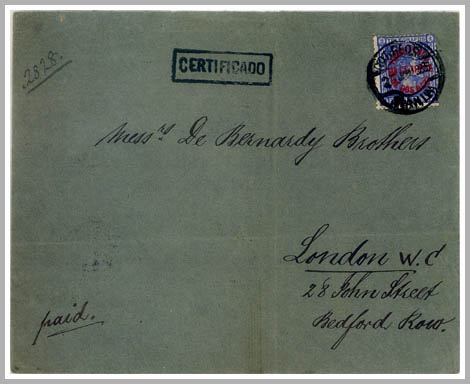 2828.
CERTIFICADO
Mess.rs De Bernardy Brothers
London W.C
28 John Street
Bedford Row.
paid.